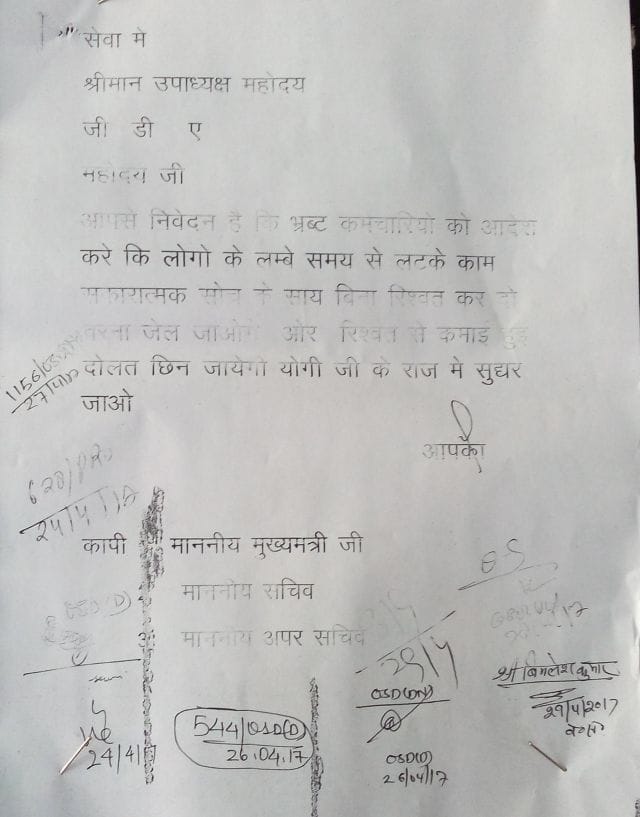 सेवा मे
श्रीमान उपाध्यक्ष महोदय
जी डी ए
महोदय जी
आपसे निवेदन है कि भ्रष्ट कमचारियो को आदेश
करे कि लोगो के लम्बे समय से लटके काम
सकारात्मक सोच के साथ बिना रिश्वत कर दो
वरना जेल जाओगे ओर रिश्वत से कमाइ हुइ
दोलत छिन जायेगी योगी जी के राज मे सुधर
जाओ
आपका
24/4/17
कापी माननीय मुख्यमत्री जी
माननीय सचिव
माननीय अपर सचिव
OSD(D)
29/4
श्री बिमलेश कुमार
29/4/2017
24/4/17
544/OSD(D)
26.04.17
OSD(D)
26/04/17